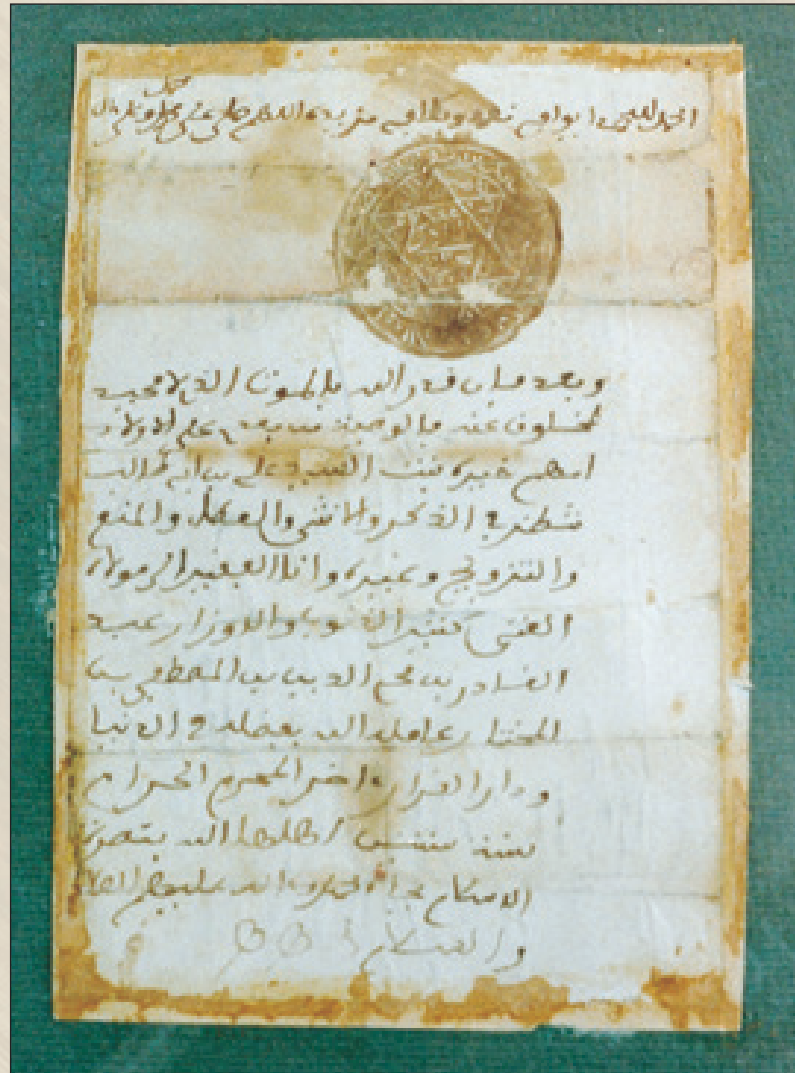 الحمد لله يوافي نعمه ويكافي مزيده اللهم صلى على محمد وعلى ءال
محمد
وبعد فإن قدر الله بالموت الذي لا محيد
لمخلوق عنه فالوصية من بعدي على الاولاد
امهم خيرة بنت السيد علي بن ابي طالب
تنظر في الذكر والانثى والعطا والمنع
والتزويج وغيره وانا الفقير الى مولاه
الغني كثير الذنوب والاوزار عبد
القادر بن محي الدين بن المصطفى بن
المختار عامله الله بفضله في الدنيا
ودار القرار اخر المحرم الحرام
سنة ستين الله
الاسلام بجاه الله عليهم الصلاة
والسلام